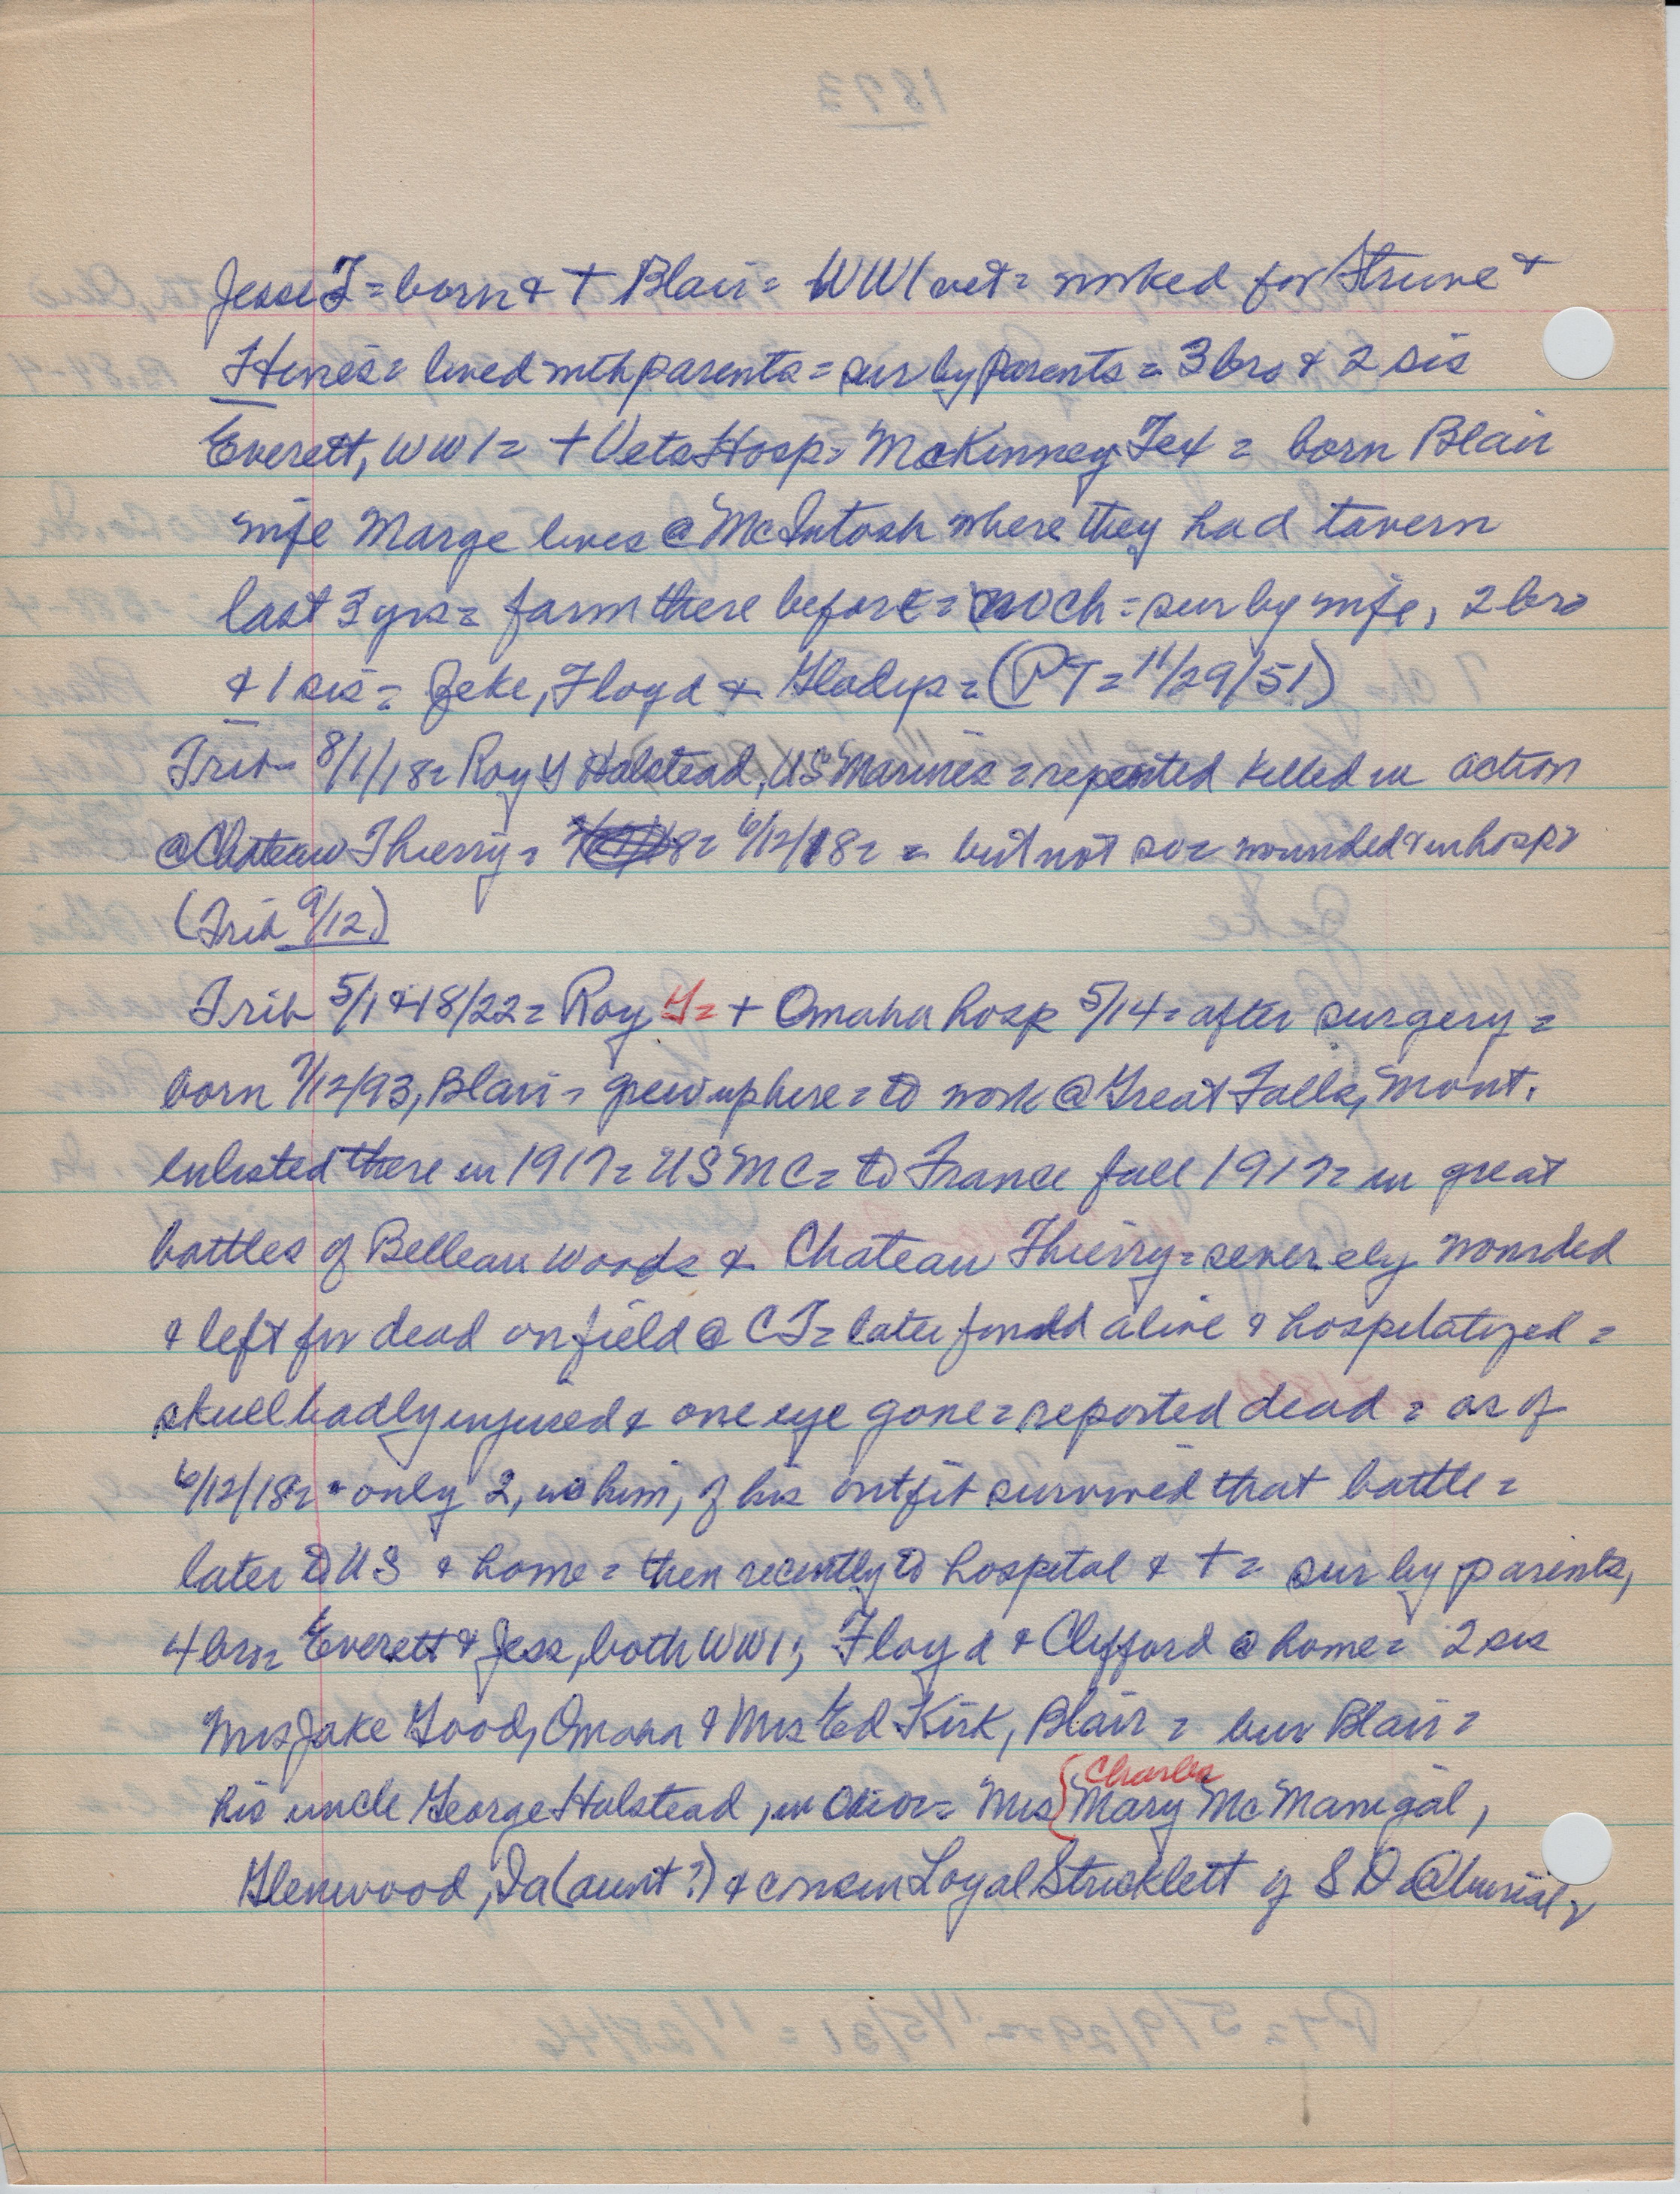 Jesse T = born & † Blair = WW1 vet = worked for Strune &
Hines = lived with parents = sur by parents = 3 bro & 2 sis
Everett, WW1 = † Vets Hosp = McKinney Tex = born Blair
wife Marge lives @ McIntosh where they had tavern
last 3 yrs = farm there before = no ch = sur by wife, 2 bro
& 1 sis = Zeke, Floyd & Gladys = (PT = 11/29/51)
Trib = 8/1/18 = Roy Y Halstead, US Marines = reported killed in action
@ Chateau Thierry = 6/12/18 = = but not so = wounded & in hosp =
(Trib 9/12)
Trib 5/1 & 18/22 = Roy Y = † Omaha hosp 5/14 = after surgery =
born 7/12/93, Blair = grew up here = to work @ Great Falls, Mont.
enlisted there in 1917 = USMC = to France fall 1917 = in great
battles of Belleau Woods & Chateau Thierry = severely wounded
& left for dead on field @ CT = later found alive & hospitalized =
skull badly injured & one eye gone = reported dead = as of
6/12/18 = only 2, w him, of his outfit survived that battle =
later to US & home = then recently to hospital & † = sur by parents,
4 bro = Everett & Jess, both WW1; Floyd & Clifford @ home = 2 sis
Mrs Jake Good, Omaha & Mrs Ed Kirk, Blair = bur Blair =
Charles
his uncle George Halstead, = Mrs { Mary McManigal,
Glenwood, Ia (aunt?) & cousin Loyal Stricklett of S D @ burial =